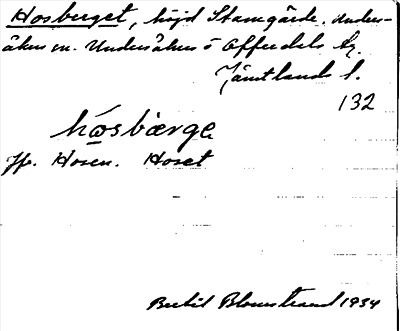 Hosberget, höjd Stamgärde. Under-
åkers sn. Undersåkers o Offerdals tg.
Jämtlands l.
132
hósbærge
Jfr. Hosen. Hoset
Bertil Blomstrand 1934